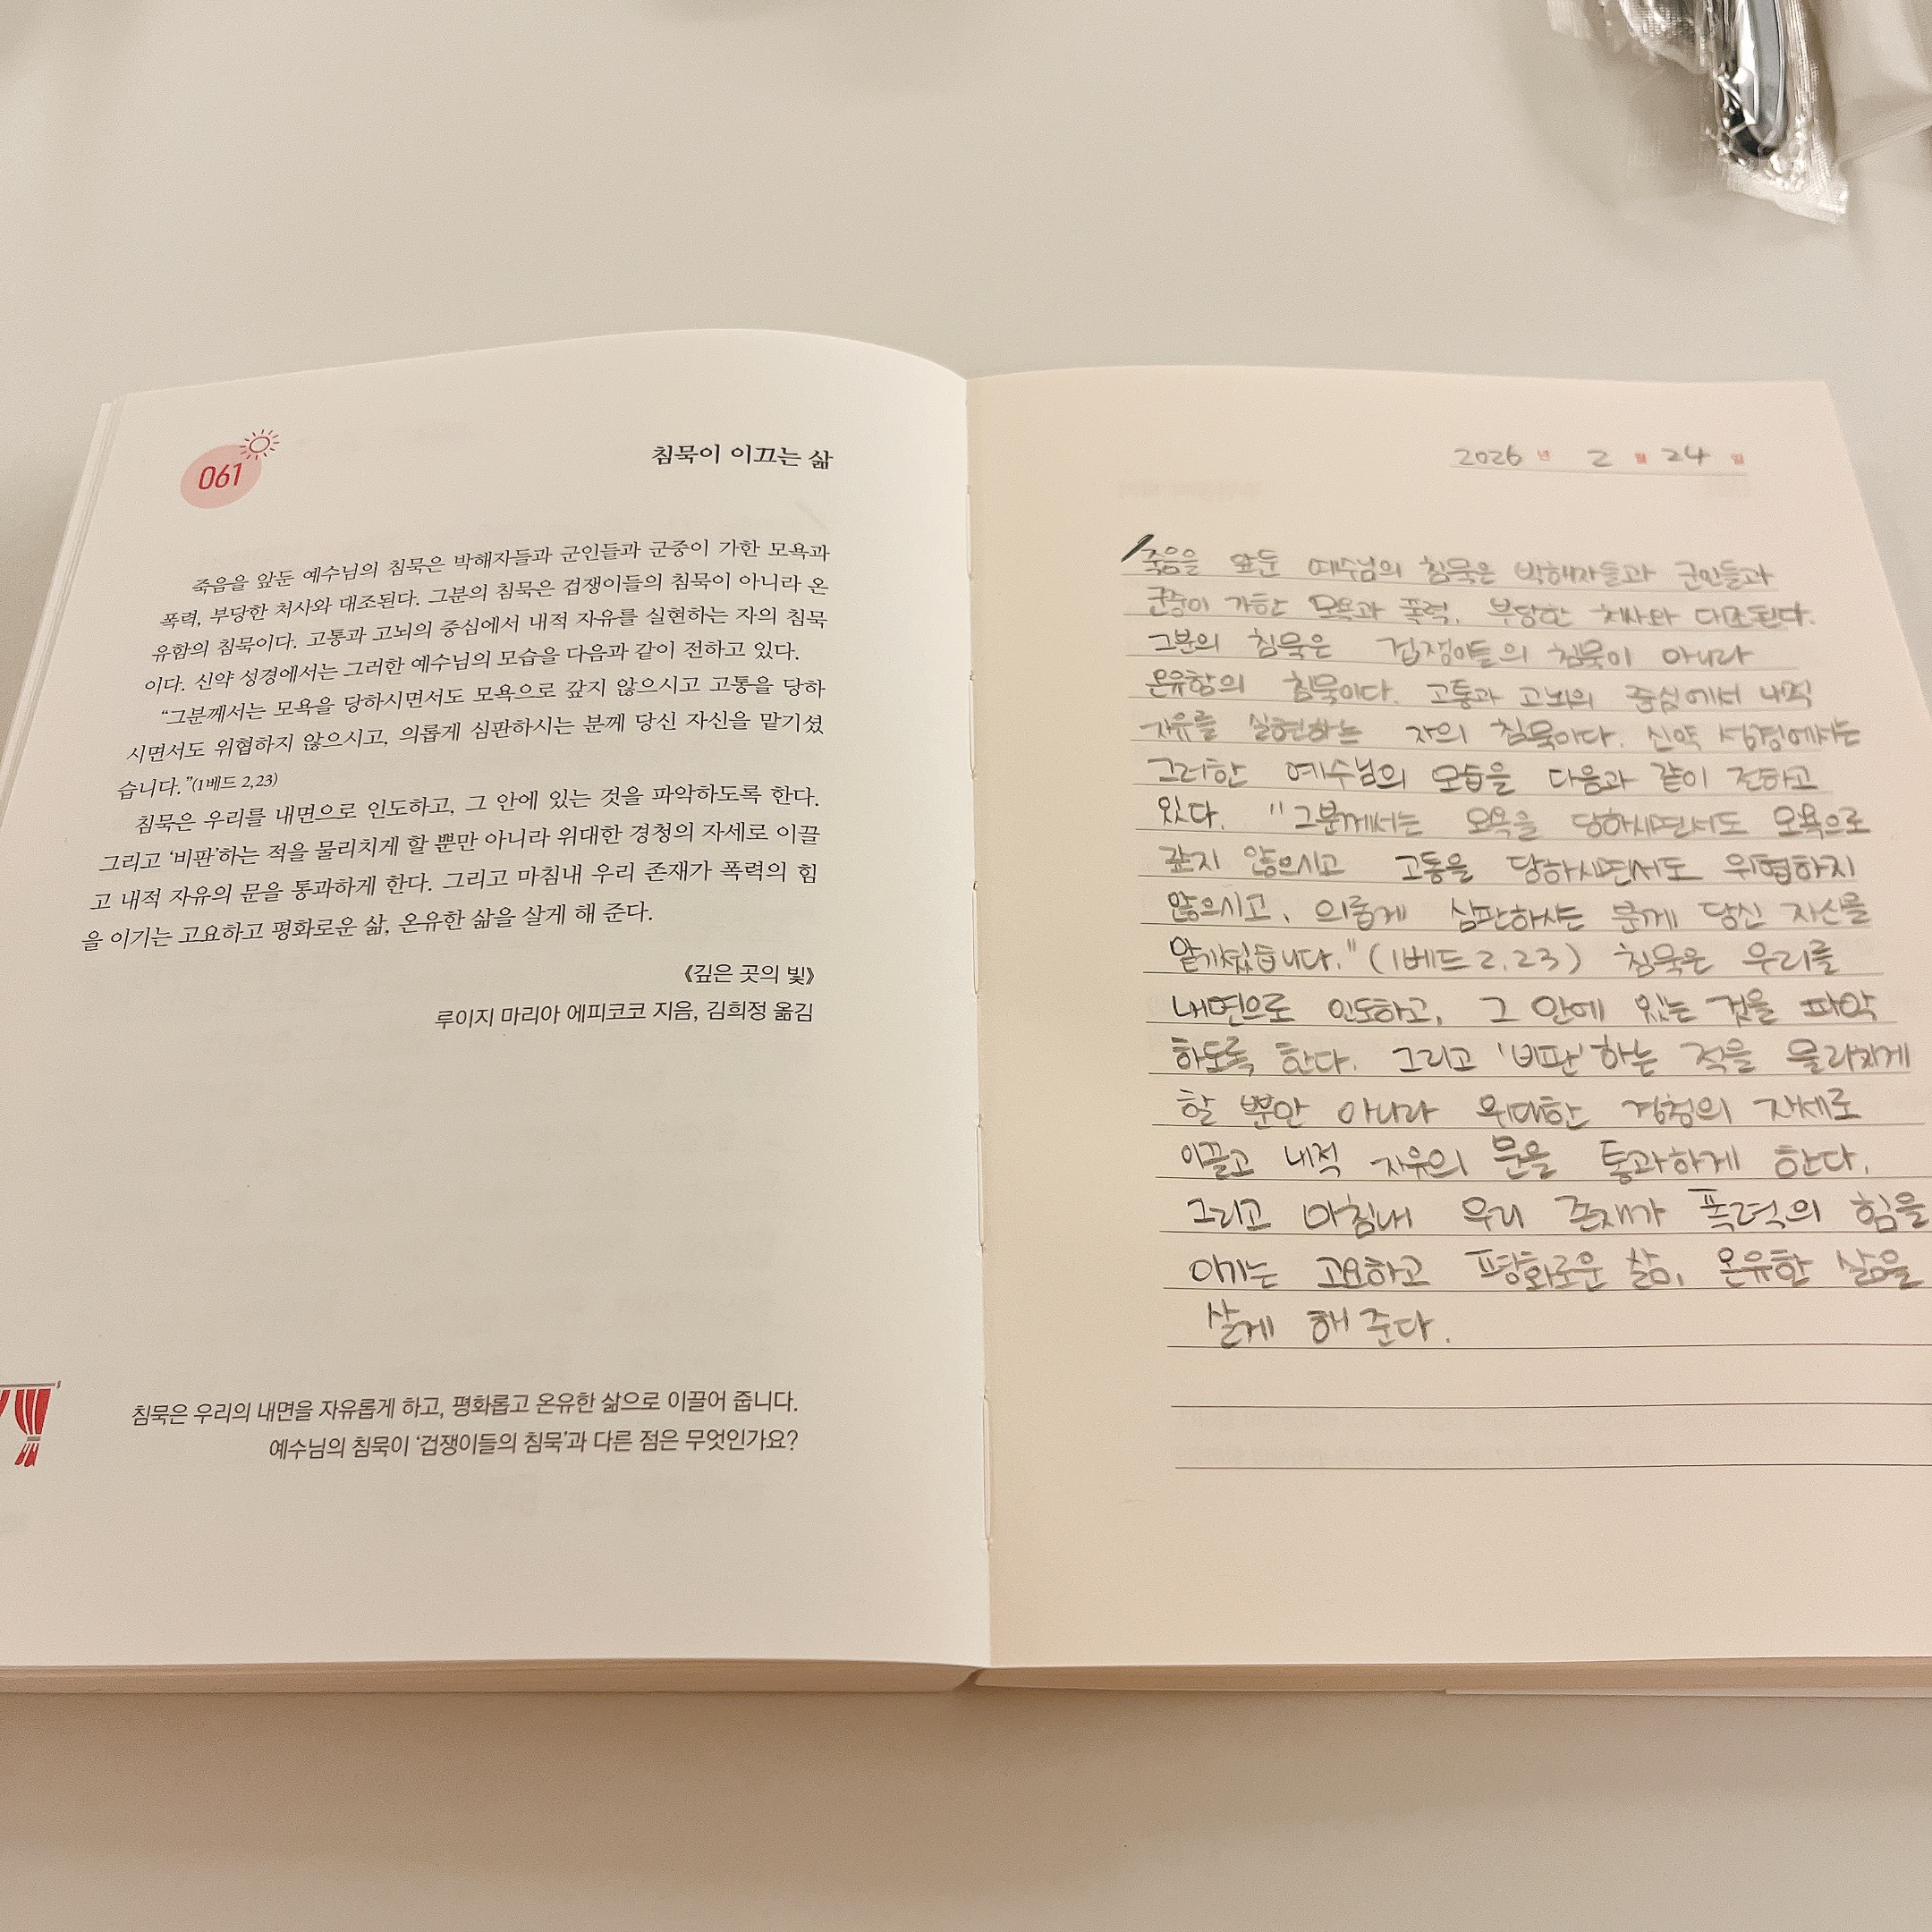 061
침묵이 이끄는 삶
죽음을 앞둔 예수님의 침묵은 박해자들과 군인들과 군중이 가한 모욕과
폭력, 부당한 처사와 대조된다. 그분의 침묵은 겁쟁이들의 침묵이 아니라 온
유함의 침묵이다. 고통과 고뇌의 중심에서 내적 자유를 실현하는 자의 침묵
이다. 신약 성경에서는 그러한 예수님의 모습을 다음과 같이 전하고 있다.
“그분께서는 모욕을 당하시면서도 모욕으로 갚지 않으시고 고통을 당하
시면서도 위협하지 않으시고, 의롭게 심판하시는 분께 당신 자신을 맡기셨
습니다.”(1베드 2,23)
침묵은 우리를 내면으로 인도하고, 그 안에 있는 것을 파악하도록 한다.
그리고 ‘비판’하는 적을 물리치게 할 뿐만 아니라 위대한 경청의 자세로 이끌
고 내적 자유의 문을 통과하게 한다. 그리고 마침내 우리 존재가 폭력의 힘
을 이기는 고요하고 평화로운 삶, 온유한 삶을 살게 해 준다.
《깊은 곳의 빛》
루이지 마리아 에피코코 지음, 김희정 옮김
침묵은 우리의 내면을 자유롭게 하고, 평화롭고 온유한 삶으로 이끌어 줍니다.
예수님의 침묵이 ‘겁쟁이들의 침묵’과 다른 점은 무엇인가요?
2026 년 2 월 24 일
죽음을 앞둔 예수님의 침묵은 박해자들과 군인들과
군중이 가한 모욕과 폭력, 부당한 처사와 대조된다.
그분의 침묵은 겁쟁이들의 침묵이 아니라
온유함의 침묵이다. 고통과 고뇌의 중심에서 내적
자유를 실현하는 자의 침묵이다. 신약 성경에서는
그러한 예수님의 모습을 다음과 같이 전하고
있다. "그분께서는 모욕을 당하시면서도 모욕으로
갚지 않으시고 고통을 당하시면서도 위협하지
않으시고, 의롭게 심판하시는 분께 당신 자신을
맡기셨습니다." (1베드 2,23) 침묵은 우리를
내면으로 인도하고, 그 안에 있는 것을 파악
하도록 한다. 그리고 '비판'하는 적을 물리치게
할 뿐만 아니라 위대한 경청의 자세로
이끌고 내적 자유의 문을 통과하게 한다.
그리고 마침내 우리 존재가 폭력의 힘을
이기는 고요하고 평화로운 삶, 온유한 삶을
살게 해 준다.